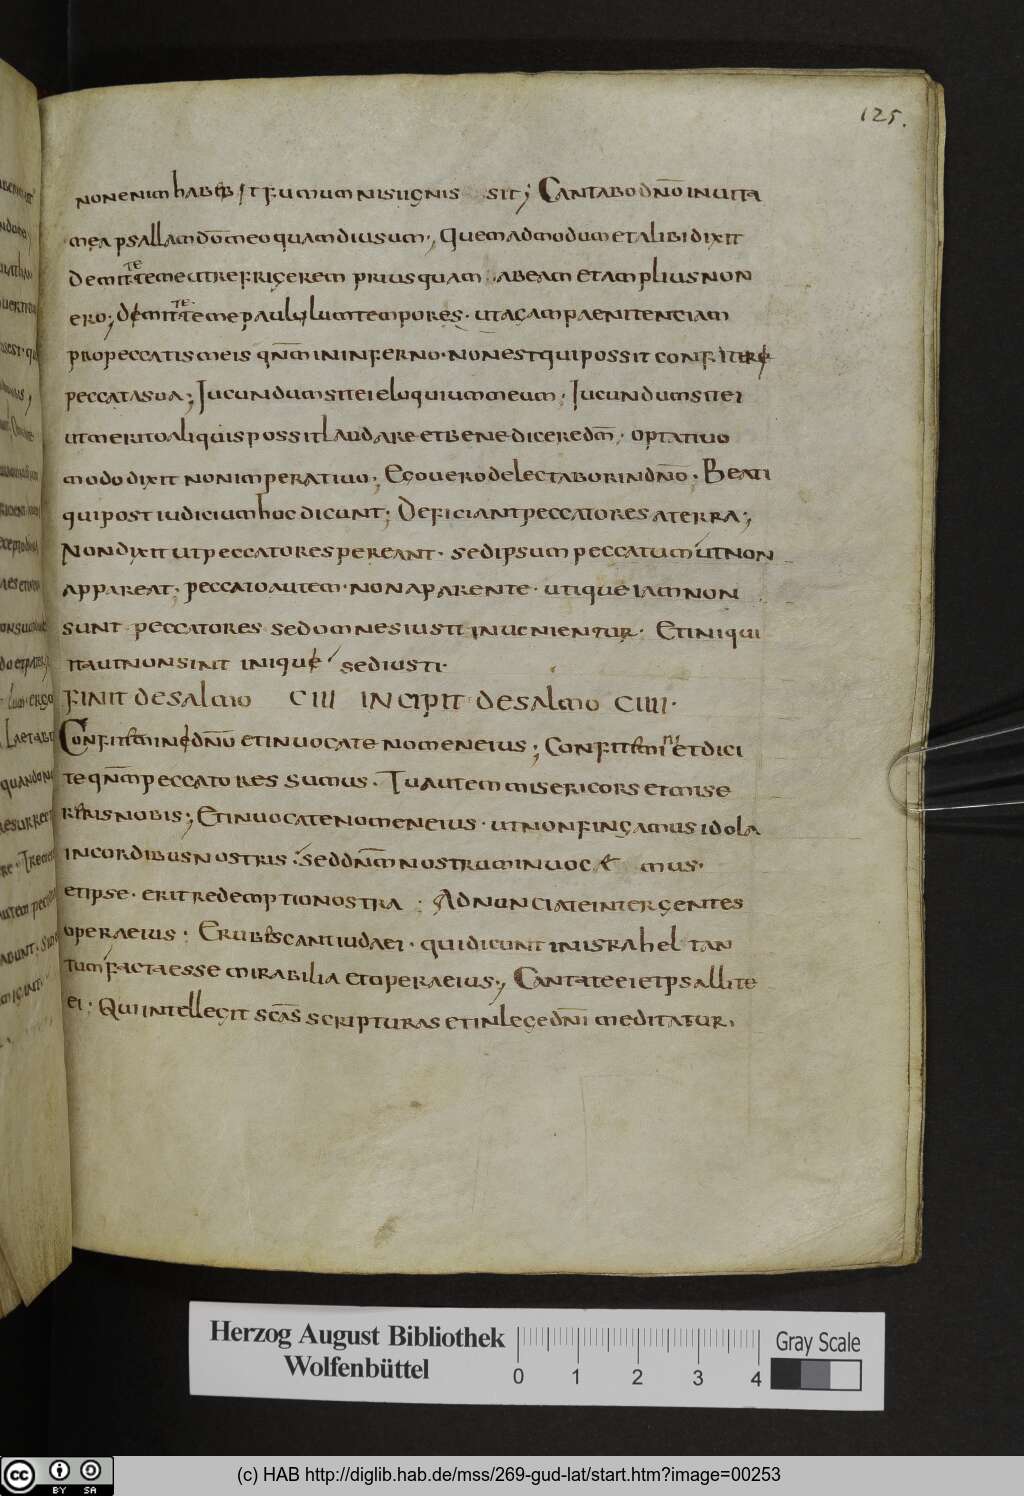 125.
non enim haberet fumum nisi ignis sit; Cantabo dn̄o in uita
mea psallam dōmeo quamdiu sum; Quemadmodum et alibi dixit
demitte me ut refrigerem prius quam abeam et amplius non
ero; demitte me paululum tempores · ut agam paenitenciam
pro peccatis meis qn̄m in inferno · non est qui possit confitere
peccata sua; Jucundum sit ei eloquium meum · Jucundum sit ei
ut merito aliquis possit laudare et benedicere dn̄m · optatiuo
modo dixit non imperatiuo; Ego uero delectabor in dn̄o · Beati
qui post iudicium hoc dicunt; Deficiant peccatores a terra;
Non dixit ut peccatores pereant · sed ipsum peccatum ut non
appareat · peccato autem · non aparente · utique iam non
sunt peccatores sed omnes iusti inuenientur · Et iniqui
ita ut non sint inique sed iusti ·
FINIT DE SALMO CIII INCIPIT DE SALMO CIIII ·
Confitemini dn̄o et inuocate nomen eius; Confitemini et dici
te qn̄m peccatores sumus · Tu autem misericors es et mise
reris nobis; Et inuocate nomen eius · ut non fingamus idola
in cordibus nostris : sed dn̄m nostrum inuoce mus ·
et ipse · erit redemptio nostra : Adnunciate inter gentes
opera eius · Erubescant iudaei · qui dicunt in israhel tan
tum facta esse mirabilia et opera eius; Cantate ei et psallite
ei · Qui intellegit scās scripturas et in lege dn̄i meditatur,
Herzog August Bibliothek
Wolfenbüttel
0 1 2 3 4
Gray Scale
(c) HAB http://diglib.hab.de/mss/269-gud-lat/start.htm?image=00253
cc BY SA